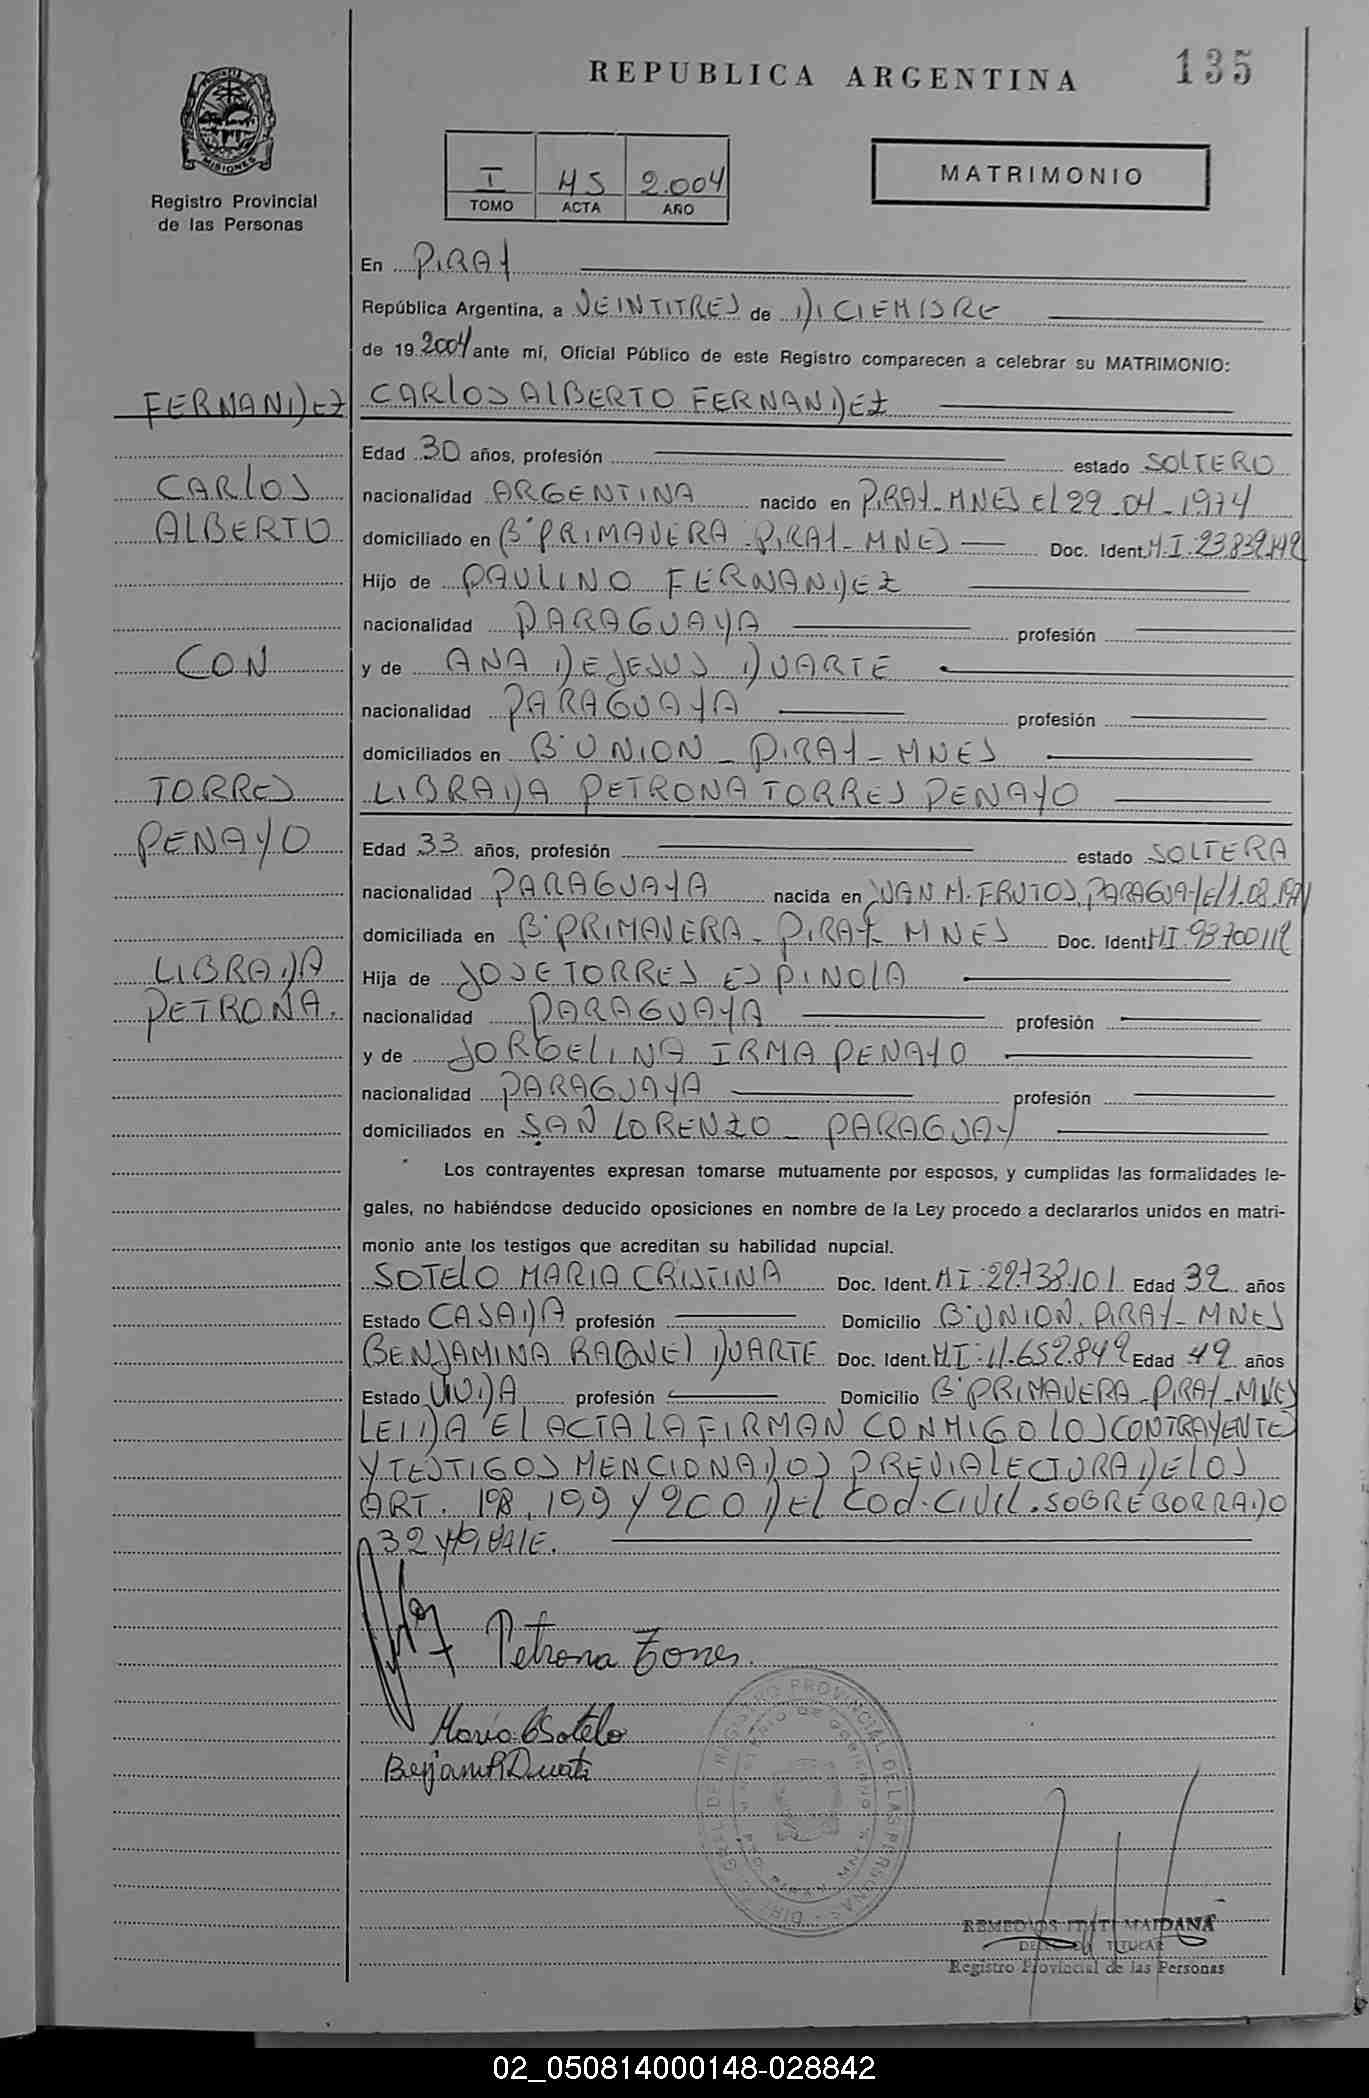 REPUBLICA ARGENTINA
135
MISIONES
Registro Provincial
de las Personas
I 45 2.004
TOMO ACTA AÑO
MATRIMONIO
En PIRAY
República Argentina, a VEINTITRES de DICIEMBRE
de 19 2004 ante mí, Oficial Público de este Registro comparecen a celebrar su MATRIMONIO:
FERNANDEZ
CARLOS
ALBERTO
CON
TORRES
PENAYO
LIBRADA
PETRONA.
CARLOS ALBERTO FERNANDEZ
Edad 30 años, profesión estado SOLTERO
nacionalidad ARGENTINA nacido en PIRAY-MNES EL 22-04-1974
domiciliado en B° PRIMAVERA-PIRAY-MNES Doc. Ident. M.I:
Hijo de PAULINO FERNANDEZ
nacionalidad PARAGUAYA profesión
y de ANA DE JESUS DUARTE
nacionalidad PARAGUAYA profesión
domiciliados en B° UNION - PIRAY-MNES
LIBRADA PETRONA TORRES PENAYO
Edad 33 años, profesión estado SOLTERA
nacionalidad PARAGUAYA nacida en JUAN M. FRUTOS, PARAGUAY
domiciliada en B° PRIMAVERA-PIRAY-MNES Doc. Ident MI:93700112
Hija de JOSE TORRES ESPINOLA
nacionalidad PARAGUAYA profesión
y de JORGELINA IRMA PENAYO
nacionalidad PARAGUAYA profesión
domiciliados en SAN LORENZO - PARAGUAY
Los contrayentes expresan tomarse mutuamente por esposos, y cumplidas las formalidades le-
gales, no habiéndose deducido oposiciones en nombre de la Ley procedo a declararlos unidos en matri-
monio ante los testigos que acreditan su habilidad nupcial.
SOTELO MARIA CRISTINA Doc. Ident. MI:22.738.101 Edad 32 años
Estado CASADA profesión Domicilio B° UNION. PIRAY-MNES
BENJAMINA RAQUEL DUARTE Doc. Ident. MI:11.652.842 Edad 49 años
Estado VIUDA profesión Domicilio B° PRIMAVERA-PIRAY-MNES
LEIDA EL ACTA LA FIRMAN CONMIGO LOS CONTRAYENTES
Y TESTIGOS MENCIONADOS PREVIA LECTURA DE LOS
ART. 198, 199 Y 200 DEL COD. CIVIL. SOBRE BORRADO
32 VALE.
Petrona Torres
María C Sotelo
Benjam R Duarte
REGISTRO PROVINCIAL DE LAS PERSONAS
MINISTERIO DE GOBIERNO
REMEDIOS ITATI MAIDANA
TITULAR
Registro Provincial de las Personas
02_050814000148-028842